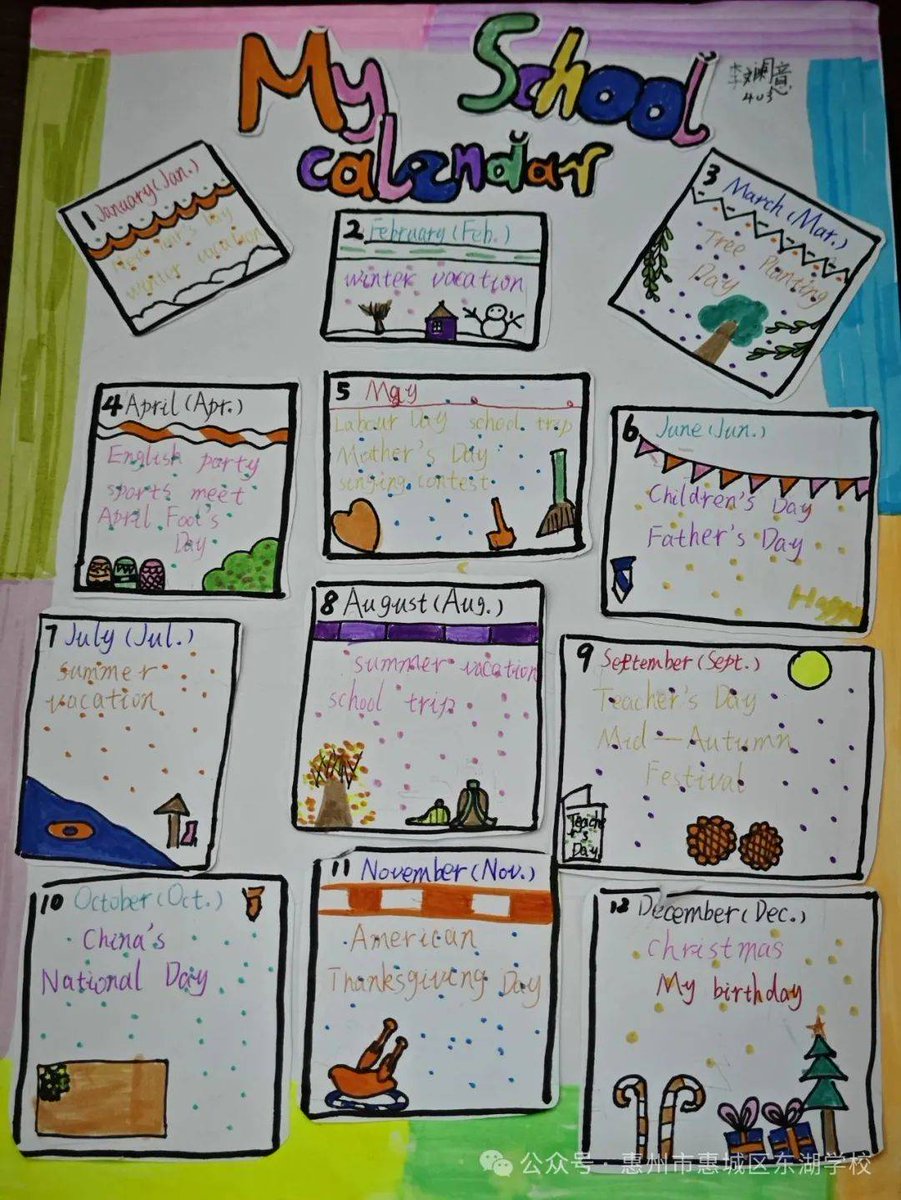 My School
calendar
李斓意
403
1 January(Jan.)
New Year's Day
winter vacation
2 February(Feb.)
winter vacation
3 March(Mar.)
Tree Planting
Day
4 April(Apr.)
English party
sports meet
April Foot's
Day
5 May
Labour Day school trip
Mother's Day
singing contest
6 June(Jun.)
Children's Day
Father's Day
Happy
7 July(Jul.)
summer
vacation
8 August(Aug.)
summer vacation
school trip
9 September(Sept.)
Teacher's Day
Mid—Autumn
Festival
Teache
r's
Day
10 October(Oct.)
China's
National Day
11 November(Nov.)
American
Thanksgiving Day
12 December(Dec.)
Christmas
My birthday
公众号·惠州市惠城区东湖学校